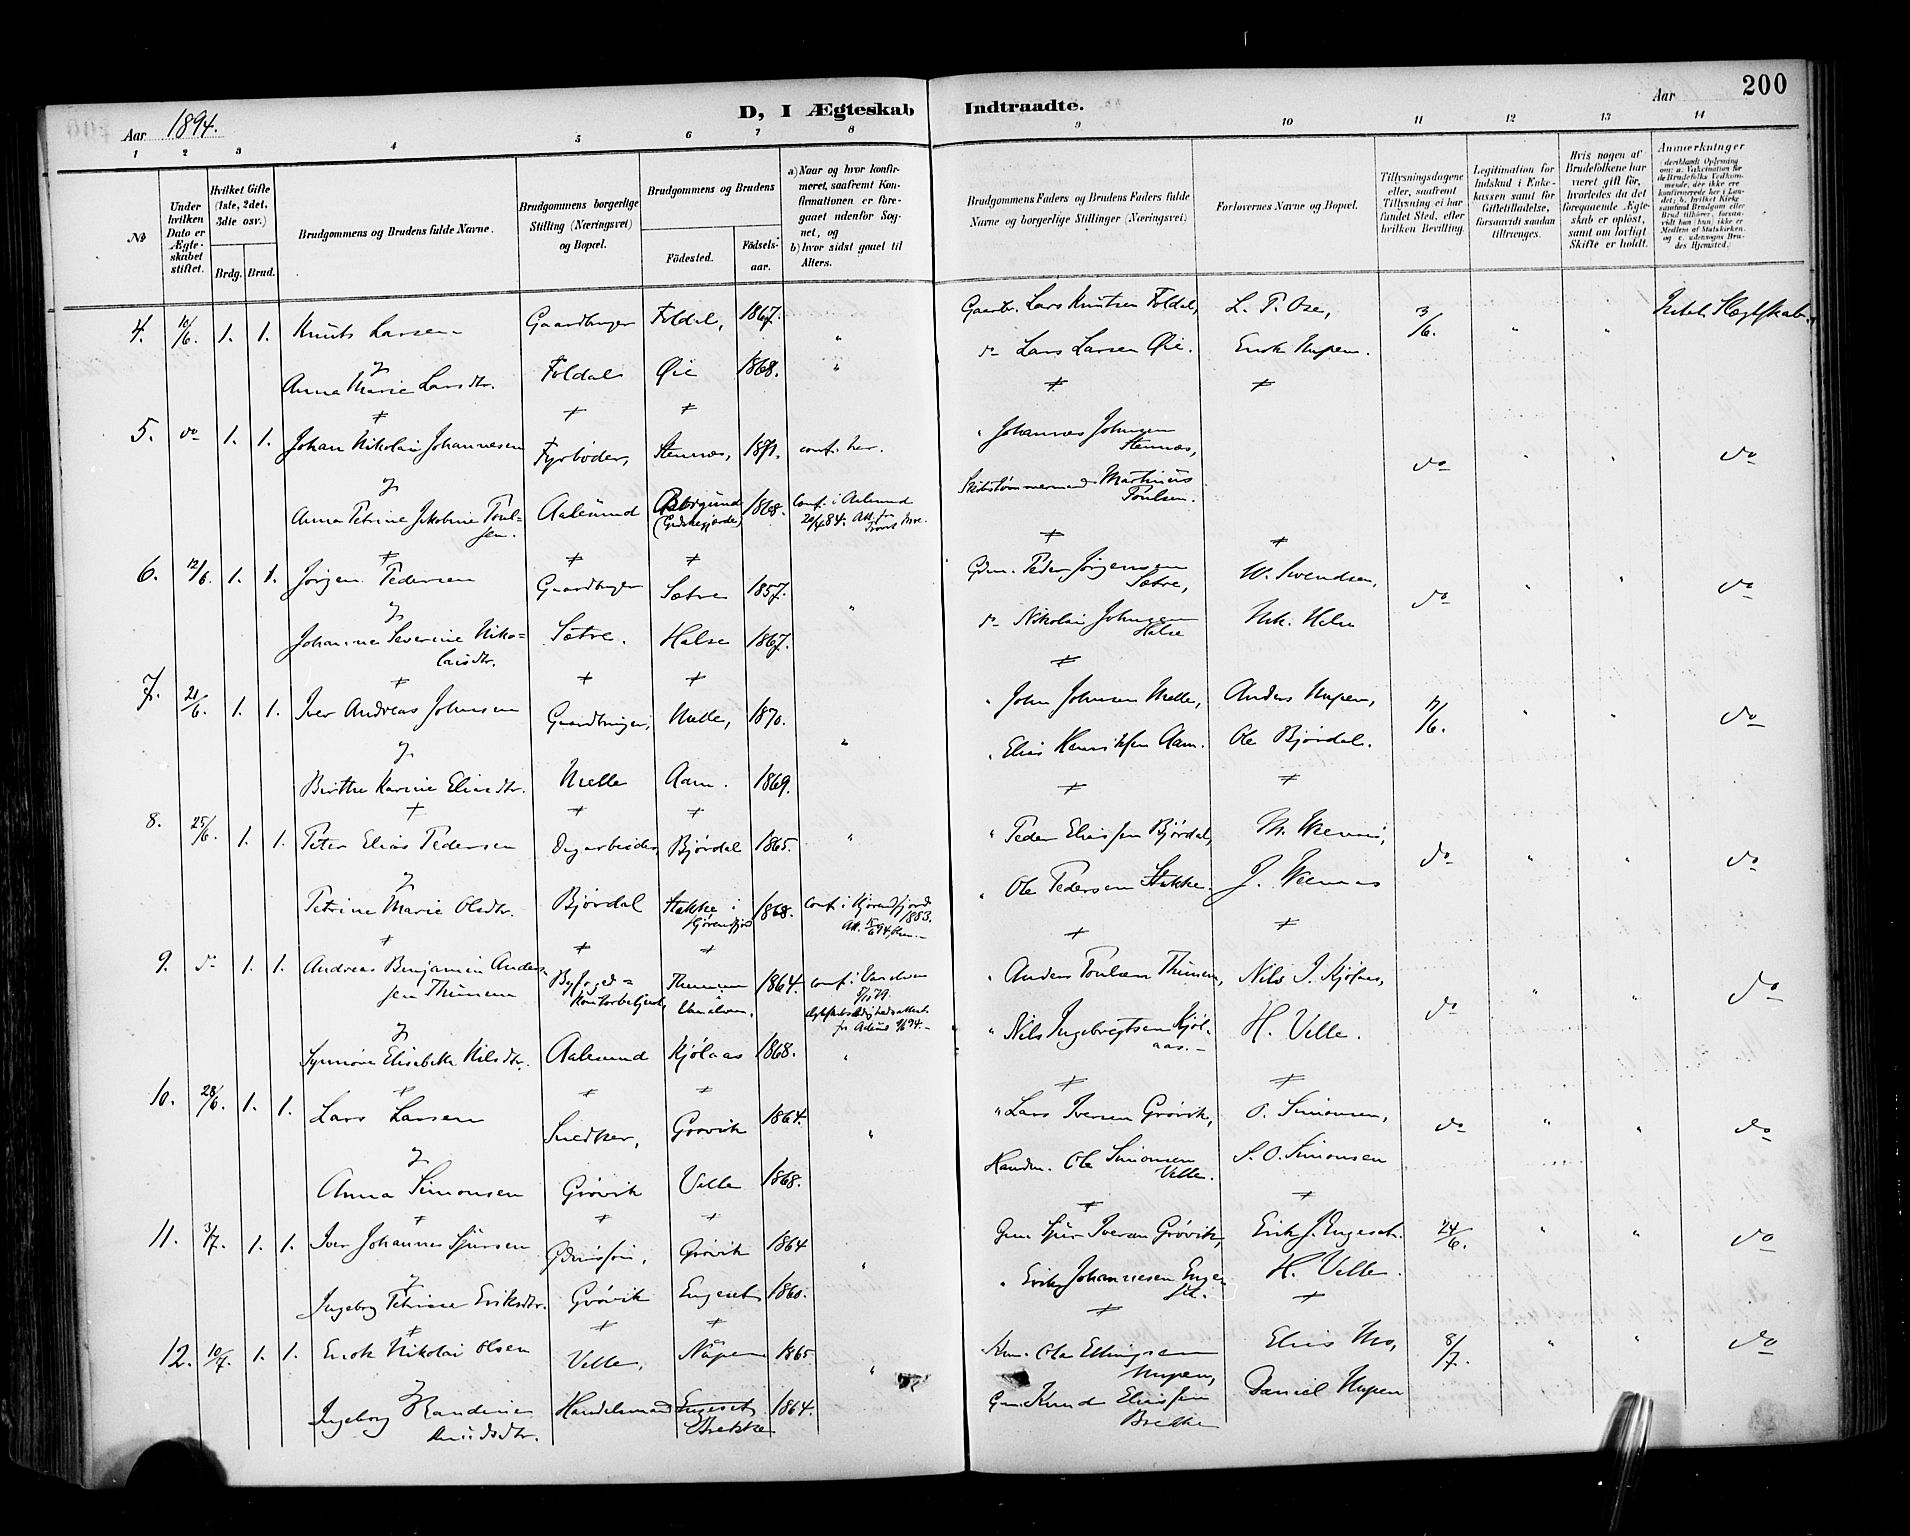 200
D, I Ægteskab Indtraadte.
Aar 1894. Aar
1 2 3 4 5 6 7 8 9 10 11 12 13 14
No
Under hvilken Dato er Ægteskabet stiftet.
Hvilket Gifte (1ste, 2det, 3die osv.)
Brdg. Brud.
Brudgommens og Brudens fulde Navne.
Brudgommens borgerlige Stilling (Næringsvei) og Bopæl.
Brudgommens og Brudens
Födested. Födselsaar.
a) Naar og hvor konfirmeret, saafremt Konfirmationen er foregaaet udenfor Sognet, og
b) hvor sidst gaaet til Alters.
Brudgommens Faders og Brudens Faders fulde Navne og borgerlige Stillinger (Næringsvei)
Forlovernes Navne og Bopæl.
Tillysningsdagene eller, saafremt Tillysning ei har fundet Sted, efter hvilken Bevilling.
Legitimation for Indskud i Enkekassen samt for Giftetilladelse, forsaavidt saadan tiltrænges.
Hvis nogen af Brudefolkene har været gift för, hvorledes da det foregaaende Ægteskab er oplöst, samt om lovligt Skifte er holdt.
Anmerkninger
4. 10/6. 1. 1. Knut Larsen Gaardbruger Foldal, 1867. " Gaardbr. Lars Knutsen Foldal, L. P. Ose, 3/6. " "
&
Anna Marie Larsdtr. Foldal Øie 1868. " do Lars Larsen Øie. Enok Nupen.
5. do 1. 1. Johan Nikolai Johannesen Fyrbøder, Stennæs, 1871. conf. her. " Johannes Johnsen Stennæs, do " " do
&
Anna Petrine Jakobine Poulsen. Aalesund Borgund 1868. conf. i Aalesund Skibstømmermand Martinus Poulsen.
6. 12/6. 1. 1. Jørgen Pedersen Gaardbruger Sætre 1857. " Gdm. Peder Jørgensen Sætre, W. Svendsen, do " " do
&
Johanne Severine Nikolaisdtr. Sætre. Halse 1867. do Nikolai Johnsen Halse
7. 21/6. 1. 1. Iver Andreas Johnsen Gaardbruger, Melle, 1870. " " John Johnsen Melle, Anders Nupen, 17/6. " " do
&
Birthe Karine Eliasdtr. Melle Aam. 1869. " Elias Henriksen Aam. Ole Bjørdal.
8. 25/6. 1. 1. Peter Elias Pedersen Dagarbeider Bjørdal 1865. " " Peder Eliassen Bjørdal, do " " do
&
Petrine Marie Olsdtr. Bjørdal Stokke i Hjørendfjord 1868. conf. i Hjørendfjord 1883. " Ole Pedersen Stokke.
9. do 1. 1. Andreas Benjamin Andersen Thunem Byfoged= Kontorbetjent, Thunem Vanelven, 1864. conf. i Vanelven " Anders Poulsen Thunem, Nils J. Kjølaas, do " " do
&
Synnøve Elisabeth Nilsdtr. Aalesund Kjølaas 1868. " " Nils Ingebregtsen Kjølaas. H. Velle.
10. 28/6. 1. 1. Lars Larsen Snedker, Grøvik 1864. " " Lars Iversen Grøvik, O. Simonsen, do " " do
&
Anna Simonsen Grøvik Velle 1868. Handm. Ole Simonsen Velle. S. O. Simonsen
11. 3/7. 1. 1. Iver Johannes Sjursen Gdmssøn, Grøvik 1864 " Gm. Sjur Iversen Grøvik, Erik J. Engeset. 24/6. " " do
&
Ingeborg Petrine Eriksdtr. Grøvik Engeset 1860. " Erik Johannesen Engeset. H. Velle.
12. 10/7. 1. 1. Enok Nikolai Olsen Velle, Nupen 1865 " Ole Ellingsen Nupen, Elias Mo, 8/7. " " do
&
Ingeborg Randine Knudsdtr. Handelsmand Engeset Brekke 1864. Gm. Knud Eliassen Brekke Daniel Nupen